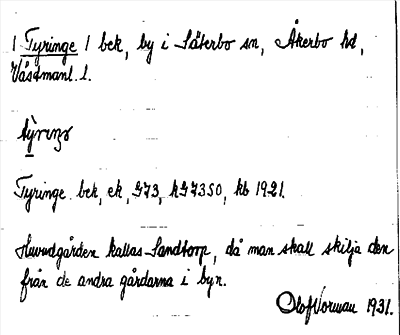 1 Tyringe / bek, by i Säterbo sn, Åkerbo hd,
Västmanl. l.
Tyringe bek, ek, G73, hG7350, kb 1921.
Huvudgården kallas Sandtorp, då man skall skilja den
från de andra gårdarna i byn.
Olof Norman 1931.